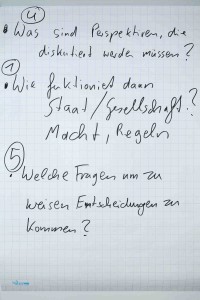 4
• Was sind Perspektiven, die
diskutiert werden müssen?
1
• Wie funktioniert dann
Staat/Gesellschaft?
Macht, Regeln
5
• Welche Fragen um zu
weisen Entscheidungen zu
kommen?